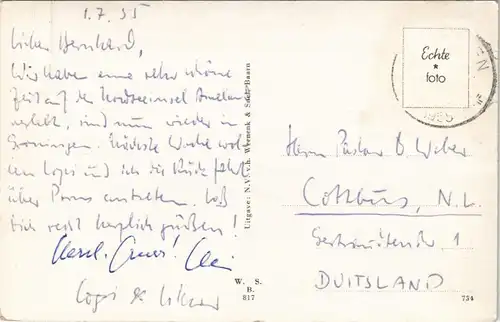 1.7.55
Lieber Bernhard,
Wir haben eine sehr schöne
Zeit auf der Nordseeinsel Ameland
verlebt, sind nun wieder in
Groningen. Nächste Woche wol-
len Logi und ich die Rückfahrt
über Paris antreten. Laß
Dich recht herzlich grüßen!
Herzl. Gruss!
Uitgave: N.V. v.h. Weenenk & Snel, Baarn
W. S.
B.
817
Echte
*
foto
EN
1955
Herrn Pastor B. Weber
Cottbus, N.L.
Gertraudtenstr. 1
DUITSLAND
734